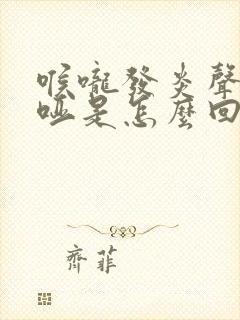 喉嚨發炎聲
啞是怎麼回
齊菲